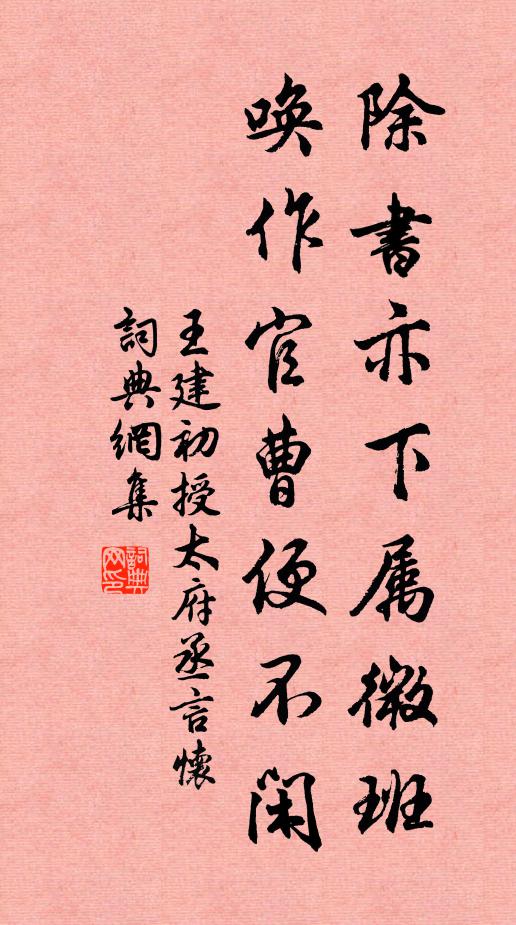 除書亦下属微班
喚作官曹便不閑
王建初授太府丞言懷
詞典網集
詞典网印